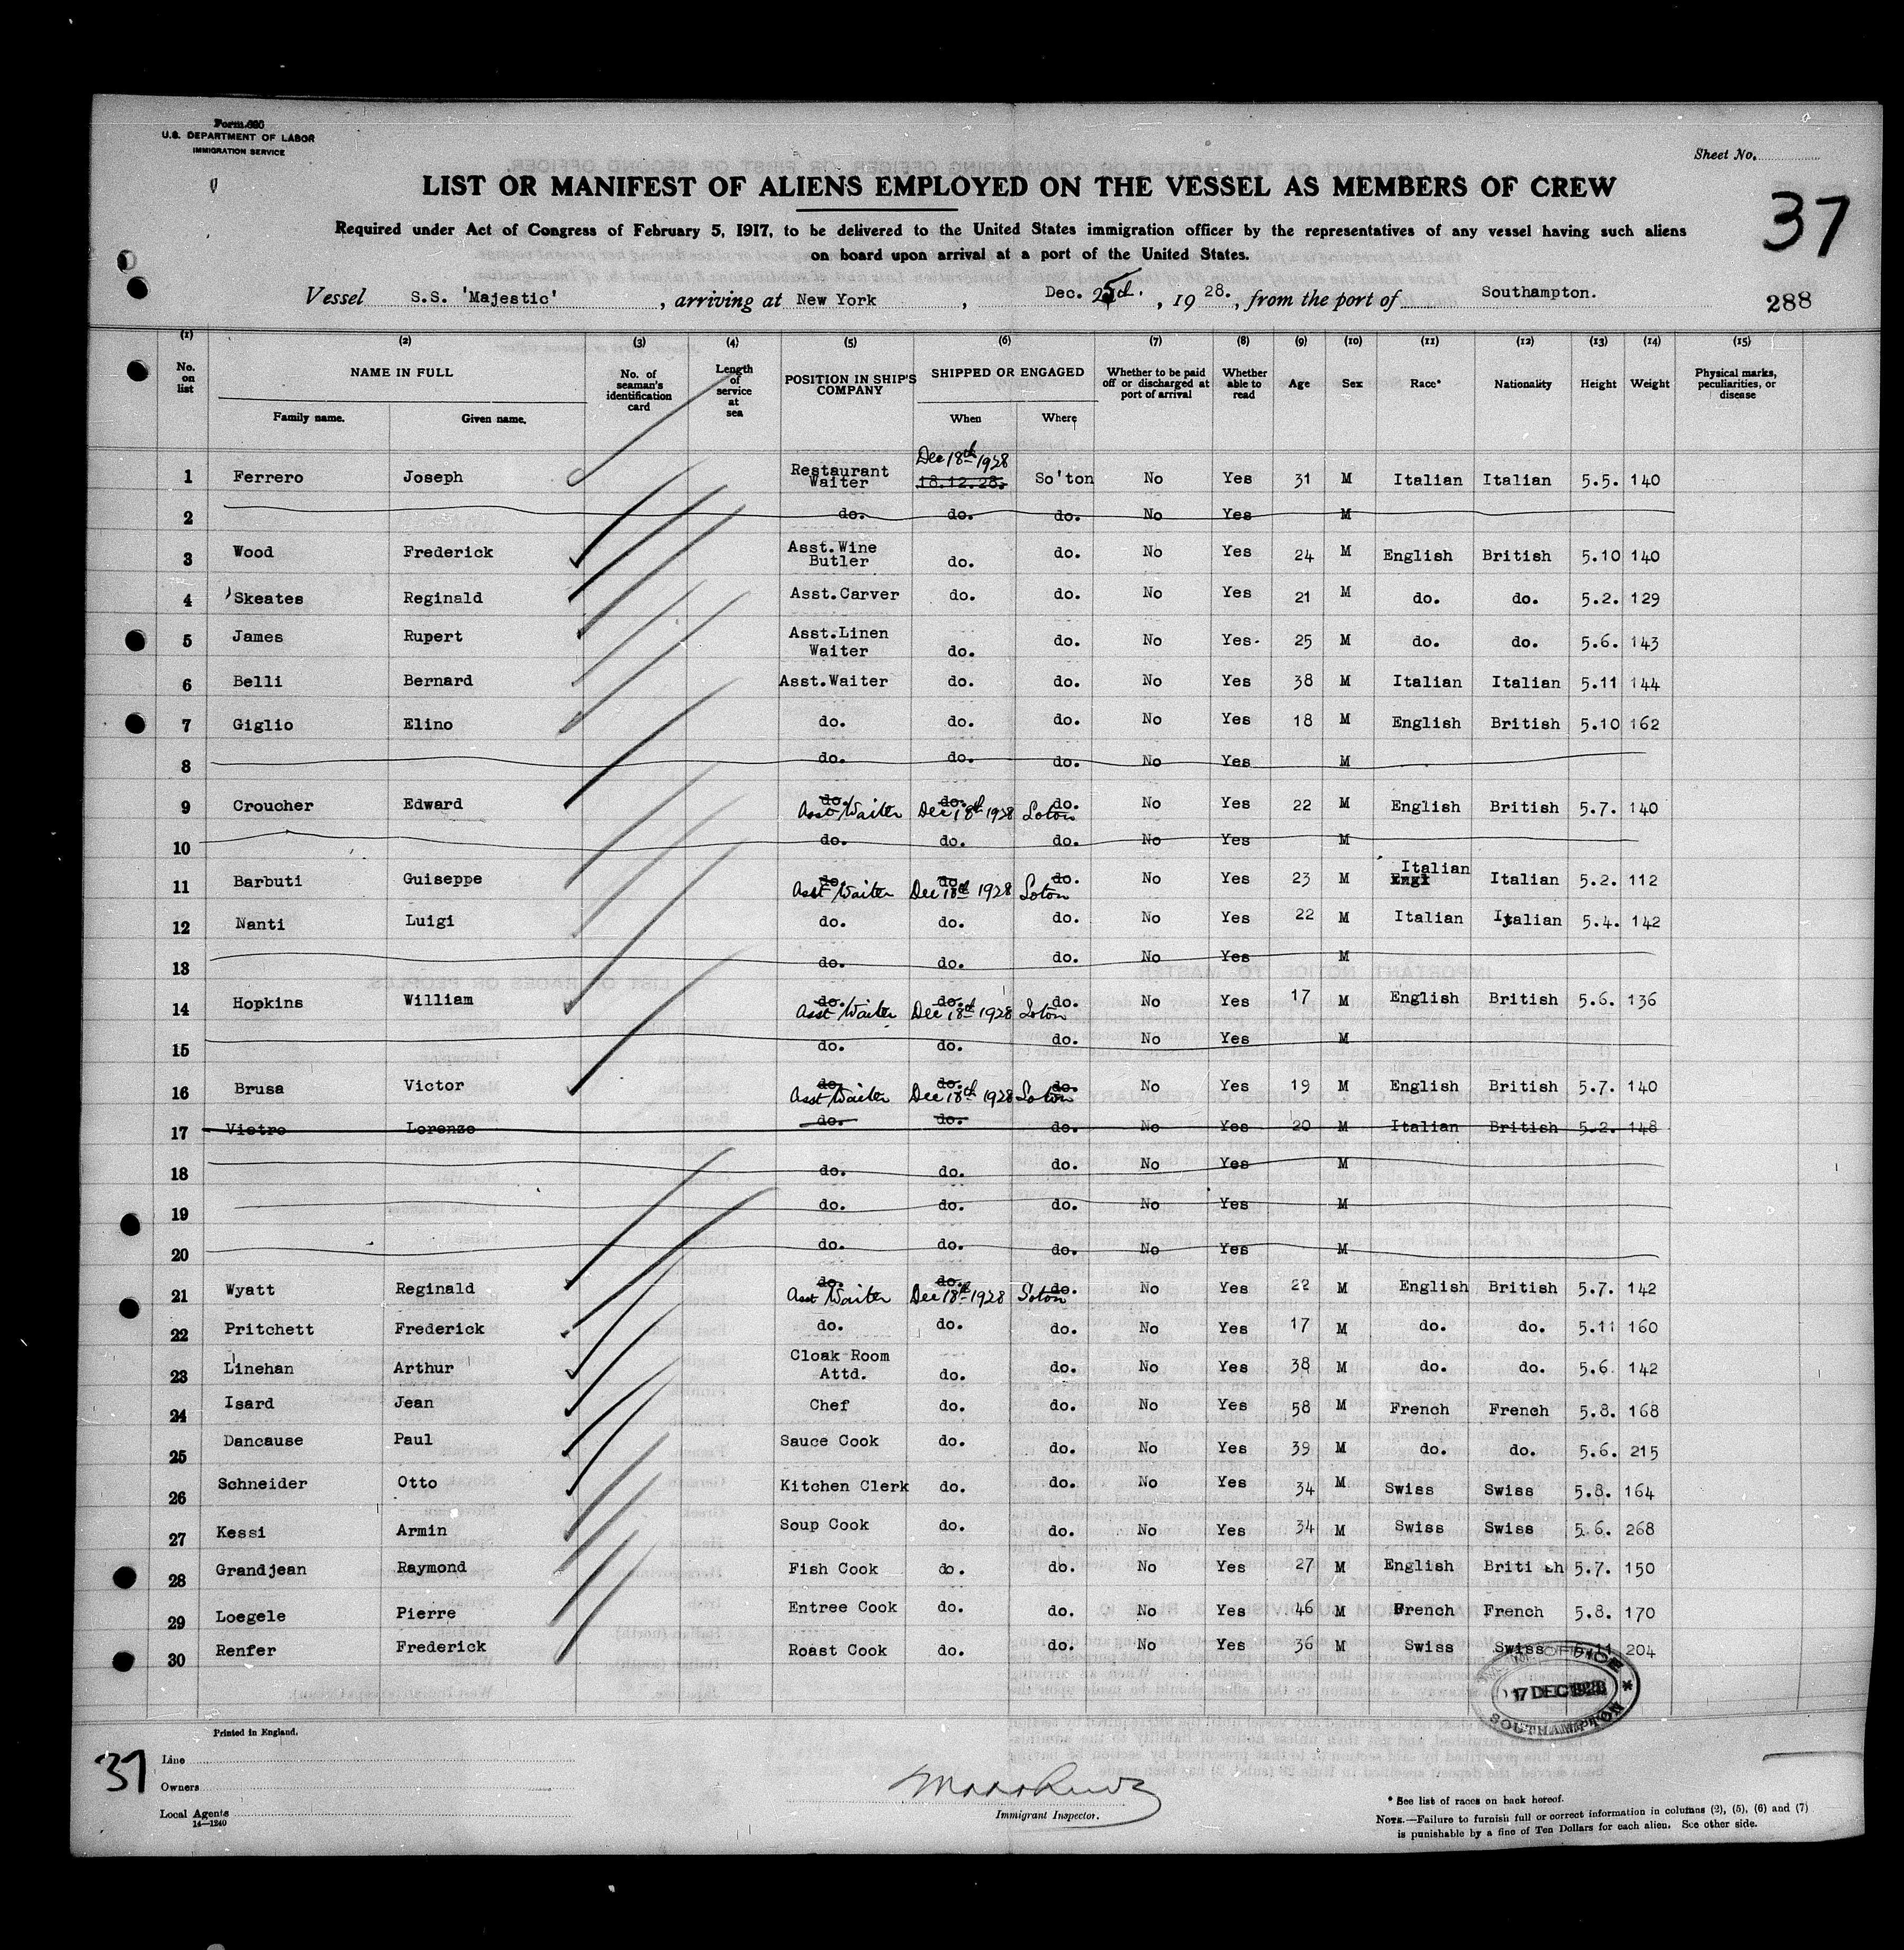 Form 680
U.S. DEPARTMENT OF LABOR
IMMIGRATION SERVICE
Sheet No.
LIST OR MANIFEST OF ALIENS EMPLOYED ON THE VESSEL AS MEMBERS OF CREW
37
Required under Act of Congress of February 5, 1917, to be delivered to the United States immigration officer by the representatives of any vessel having such aliens
on board upon arrival at a port of the United States.
Vessel S.S. 'Majestic' , arriving at New York , Dec. , 19 28. , from the port of Southampton.
288
(1) (2) (3) (4) (5) (6) (7) (8) (9) (10) (11) (12) (13) (14) (15)
No. on list NAME IN FULL Family name. Given name. No. of seaman's identification card Length of service at sea POSITION IN SHIP'S COMPANY SHIPPED OR ENGAGED When Where Whether to be paid off or discharged at port of arrival Whether able to read Age Sex Race* Nationality Height Weight Physical marks, peculiarities, or disease
1 Ferrero Joseph Restaurant Waiter Dec 18th 1928 18.12.28. So'ton No Yes 31 M Italian Italian 5.5. 140
2 do. do. do. No Yes M
3 Wood Frederick Asst.Wine Butler do. do. No Yes 24 M English British 5.10 140
4 Skeates Reginald Asst.Carver do. do. No Yes 21 M do. do. 5.2. 129
5 James Rupert Asst.Linen Waiter do. do. No Yes. 25 M do. do. 5.6. 143
6 Belli Bernard Asst.Waiter do. do. No Yes 38 M Italian Italian 5.11 144
7 Giglio Elino do. do. do. No Yes 18 M English British 5.10 162
8 do. do. do. No Yes M
9 Croucher Edward do. Asst Waiter do. Dec 18th 1928 do. Soton No Yes 22 M English British 5.7. 140
10 do. do. do. No Yes M
11 Barbuti Guiseppe do. Asst Waiter do. Dec 18th 1928 do. Soton No Yes 23 M Engl Italian Italian 5.2. 112
12 Nanti Luigi do. do. do. No Yes 22 M Italian Italian 5.4. 142
13 do. do. do. No Yes M
14 Hopkins William do. Asst Waiter do. Dec 18th 1928 do. Soton No Yes 17 M English British 5.6. 136
15 do. do. do. No Yes M
16 Brusa Victor do. Asst Waiter do. Dec 18th 1928 do. Soton No Yes 19 M English British 5.7. 140
17 Vietro Lorenzo do. do. do. No Yes 20 M Italian British 5.2. 148
18 do. do. do. No Yes M
19 do. do. do. No Yes M
20 do. do. do. No Yes M
21 Wyatt Reginald do. Asst Waiter do. Dec 18th 1928 do. Soton No Yes 22 M English British 5.7. 142
22 Pritchett Frederick do. do. do. No Yes 17 M do. do. 5.11 160
23 Linehan Arthur Cloak Room Attd. do. do. No Yes 38 M do. do. 5.6. 142
24 Isard Jean Chef do. do. No Yes 58 M French French 5.8. 168
25 Dancause Paul Sauce Cook do. do. No Yes 39 M do. do. 5.6. 215
26 Schneider Otto Kitchen Clerk do. do. No Yes 34 M Swiss Swiss 5.8. 164
27 Kessi Armin Soup Cook do. do. No Yes 34 M Swiss Swiss 5.6. 268
28 Grandjean Raymond Fish Cook do. do. No Yes 27 M English British 5.7. 150
29 Loegele Pierre Entree Cook do. do. No Yes 46 M French French 5.8. 170
30 Renfer Frederick Roast Cook do. do. No Yes 36 M Swiss Swiss 5.11 204
OFFICE
17 DEC 1928
SOUTHAMPTON
Printed in England.
37
Line
Owners
Local Agents
14—1240
Immigrant Inspector.
* See list of races on back hereof.
NOTE.—Failure to furnish full or correct information in columns (2), (5), (6) and (7)
is punishable by a fine of Ten Dollars for each alien. See other side.